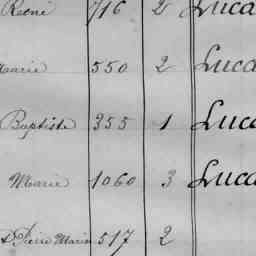 René 716 2 Luca
Marie 550 2 Luca
Baptiste 355 1 Luca
Marie 1060 3 Luca
Pierre Marie 517 2